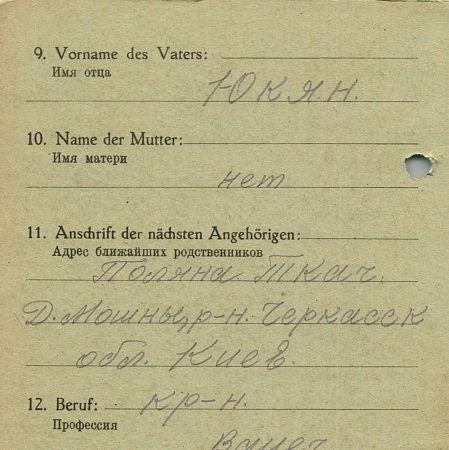 9. Vorname des Vaters:
Имя отца
Юкян.
10. Name der Mutter:
Имя матери
нет
11. Anschrift der nächsten Angehörigen:
Адрес ближайших родственников
Поляна Ткач.
Д. Мошны, р-н. Черкасск
обл. Киев.
12. Beruf: кр-н.
Профессия